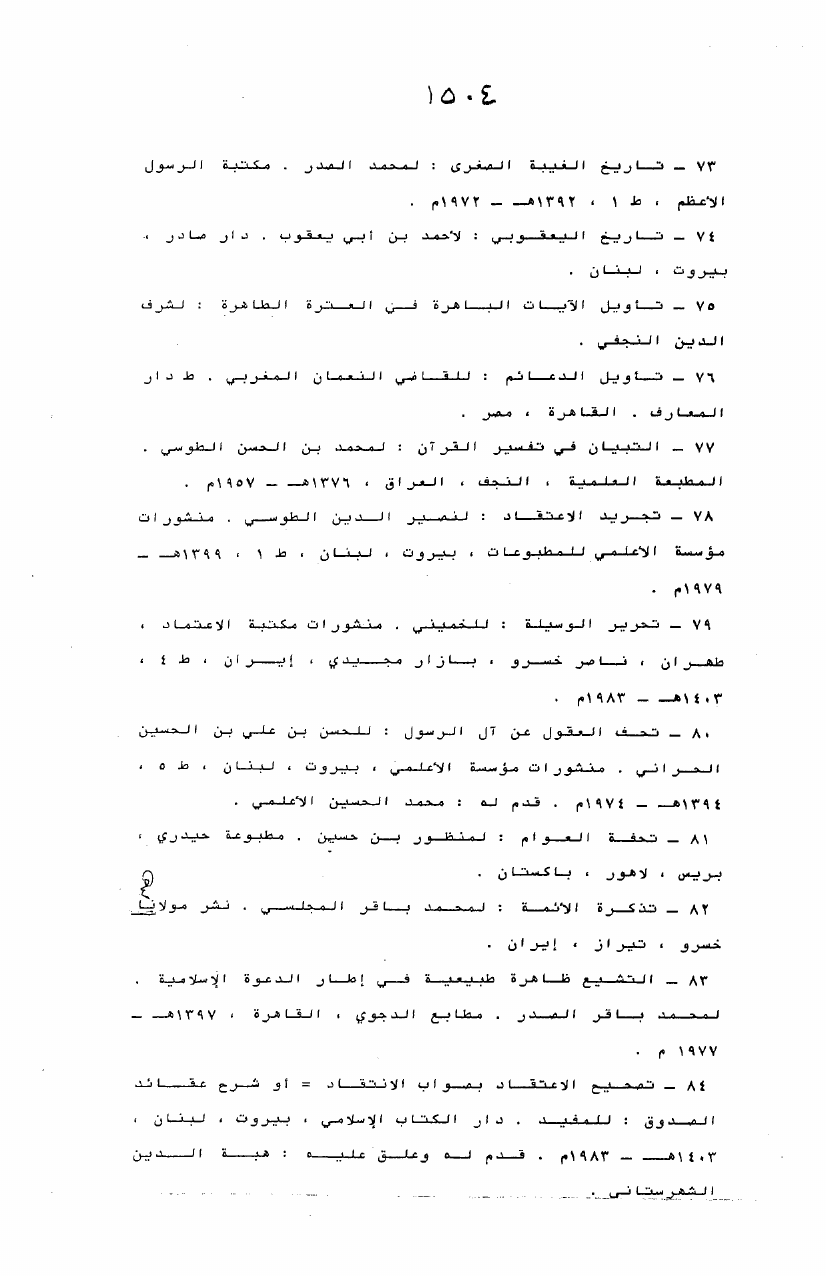 ١٥٠٤
٧٣ – تاريخ الغيبة الصغرى : لمحمد الصدر . مكتبة الرسول
الأعظم ، ط ١ ، ١٣٩٢هـ – ١٩٧٢م .
٧٤ – تاريخ اليعقوبي : لأحمد بن أبي يعقوب . دار صادر ،
بيروت ، لبنان .
٧٥ – تأويل الآيات الباهرة في العترة الطاهرة : لشرف
الدين النجفي .
٧٦ – تأويل الدعائم : للقاضي النعمان المغربي . ط دار
المعارف . القاهرة ، مصر .
٧٧ – التبيان في تفسير القرآن : لمحمد بن الحسن الطوسي .
المطبعة العلمية ، النجف ، العراق ، ١٣٧٦هـ – ١٩٥٧م .
٧٨ – تجريد الاعتقاد : لنصير الدين الطوسي . منشورات
مؤسسة الأعلمي للمطبوعات ، بيروت ، لبنان ، ط ١ ، ١٣٩٩هـ –
١٩٧٩م .
٧٩ – تحرير الوسيلة : للخميني . منشورات مكتبة الاعتماد ،
طهران ، ناصر خسرو ، بازار مجيدي ، إيران ، ط ٤ ،
١٤٠٣هـ – ١٩٨٣م .
٨٠ – تحف العقول عن آل الرسول : للحسن بن علي بن الحسين
الحراني . منشورات مؤسسة الأعلمي ، بيروت ، لبنان ، ط ٥ ،
١٣٩٤هـ – ١٩٧٤م . قدم له : محمد الحسين الأعلمي .
٨١ – تحفة العوام : لمنظور بن حسين . مطبوعة حيدري ،
بريس ، لاهور ، باكستان .
٨٢ – تذكرة الأئمة : لمحمد باقر المجلسي . نشر مولانا
خسرو ، تيراز ، إيران .
٨٣ – التشيع ظاهرة طبيعية في إطار الدعوة الإسلامية .
لمحمد باقر الصدر . مطابع الدجوي ، القاهرة ، ١٣٩٧هـ –
١٩٧٧ م .
٨٤ – تصحيح الاعتقاد بصواب الانتقاد = أو شرح عقائد
الصدوق : للمفيد . دار الكتاب الإسلامي ، بيروت ، لبنان ،
١٤٠٣هـ – ١٩٨٣م . قدم له وعلق عليه : هبة الدين
الشهرستاني .